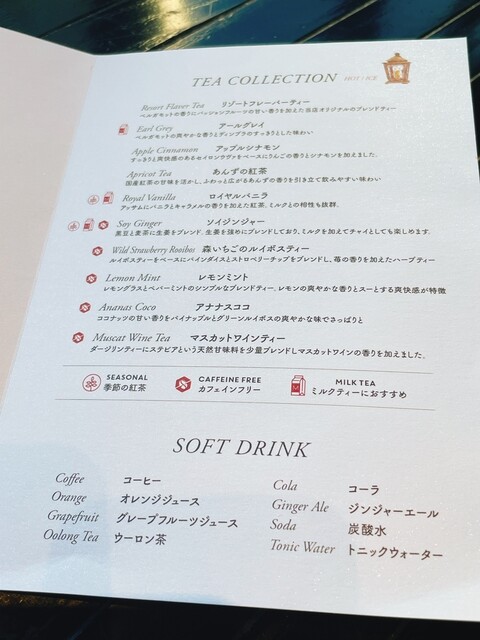 TEA COLLECTION HOT / ICE
Resort Flavor Tea リゾートフレーバーティー
ベルガモットの香りにパッションフルーツの甘い香りを加えた当店オリジナルのブレンドティー
Earl Grey アールグレイ
ベルガモットの爽やかな香りとディンブラのすっきりとした味わい
Apple Cinnamon アップルシナモン
すっきりと爽快感のあるセイロンウヴァをベースにりんごの香りとシナモンを加えました。
Apricot Tea あんずの紅茶
国産紅茶の甘味を活かし、ふわっと広がるあんずの香りを引き立て飲みやすい味わい
Royal Vanilla ロイヤルバニラ
アッサムにバニラとキャラメルの香りを加えた紅茶。ミルクとの相性も抜群。
Soy Ginger ソイジンジャー
黒豆と麦茶に生姜をブレンド。生姜を強めにブレンドしており、ミルクを加えてチャイとしても楽しめます.
Wild Strawberry Rooibos 森いちごのルイボスティー
ルイボスティーをベースにパインダイスとストロベリーチップをブレンドし、苺の香りを加えたハーブティー
Lemon Mint レモンミント
レモングラスとペパーミントのシンプルなブレンドティー。レモンの爽やかな香りとスーとする爽快感が特徴
Ananas Coco アナナスココ
ココナッツの甘い香りをパイナップルとグリーンルイボスの爽やかな味でさっぱりと
Muscat Wine Tea マスカットワインティー
ダージリンティーにステビアという天然甘味料を少量ブレンドしマスカットワインの香りを加えました。
SEASONAL
季節の紅茶
CAFFEINE FREE
カフェインフリー
MILK TEA
ミルクティーにおすすめ
SOFT DRINK
Coffee コーヒー
Orange オレンジジュース
Grapefruit グレープフルーツジュース
Oolong Tea ウーロン茶
Cola コーラ
Ginger Ale ジンジャーエール
Soda 炭酸水
Tonic Water トニックウォーター